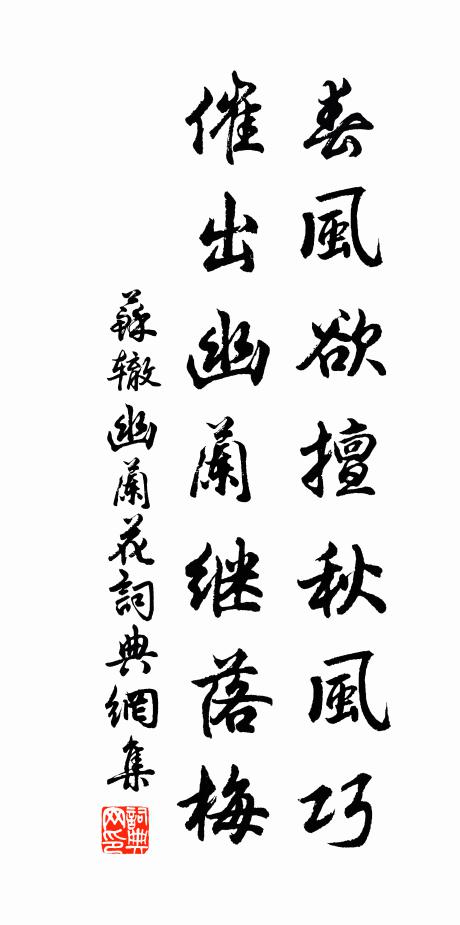 春風欲擅秋風巧
催出幽蘭继落梅
蘇辙幽蘭花詞典網集
詞典
网印